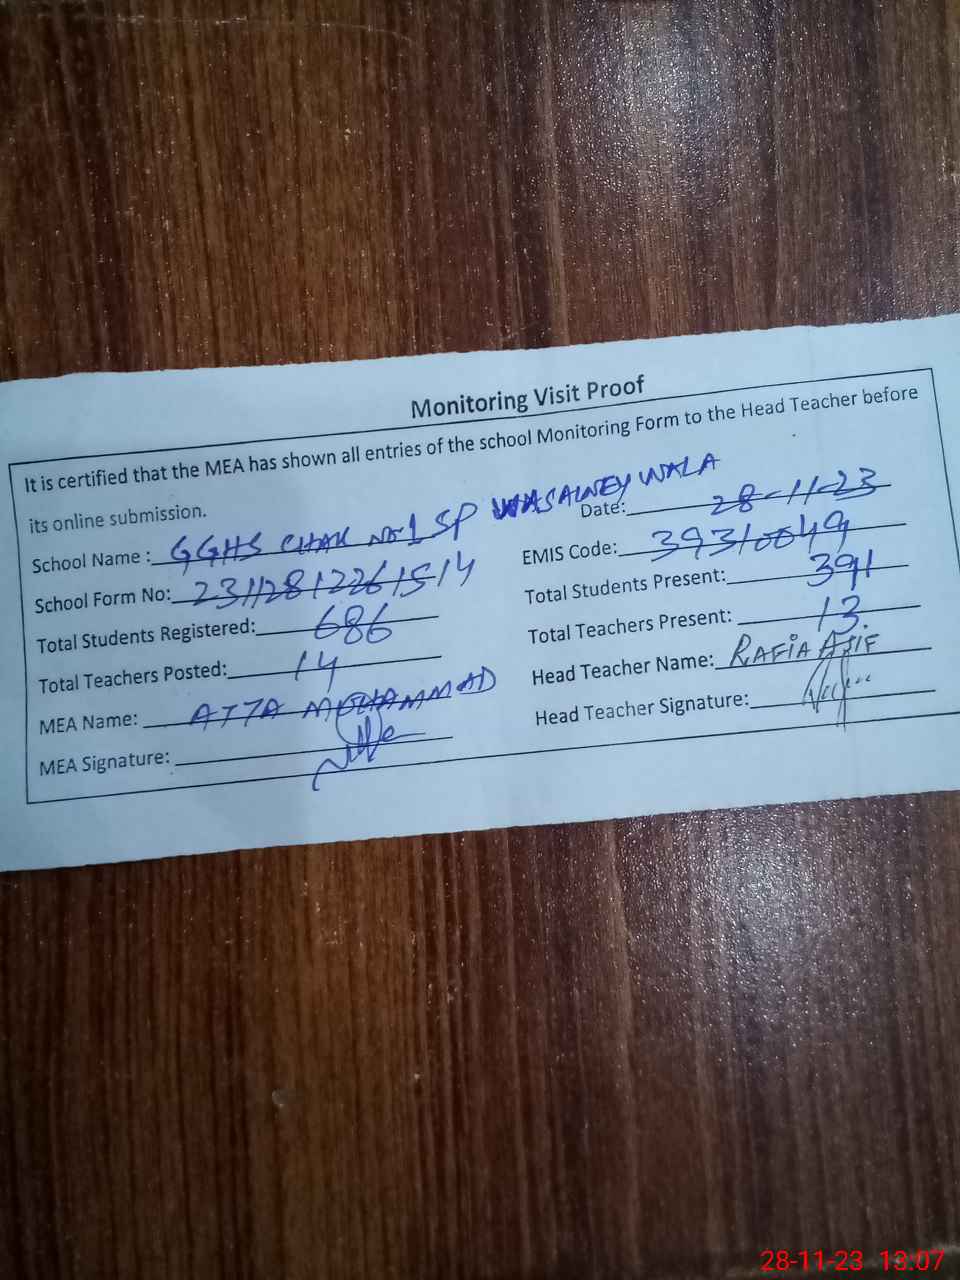 Monitoring Visit Proof
It is certified that the MEA has shown all entries of the school Monitoring Form to the Head Teacher before
its online submission.
Date: 28-11-23
School Name : GGHS CHAK NO-1 SP WASALNEY WALA
EMIS Code: 39310049
School Form No: 23112812261514
Total Students Present: 391
Total Students Registered: 686
Total Teachers Present: 13
Total Teachers Posted: 14
Head Teacher Name: RAFIA ASIF
MEA Name: ATTA MUHAMMAD
Head Teacher Signature:
MEA Signature:
28-11-23 13:07